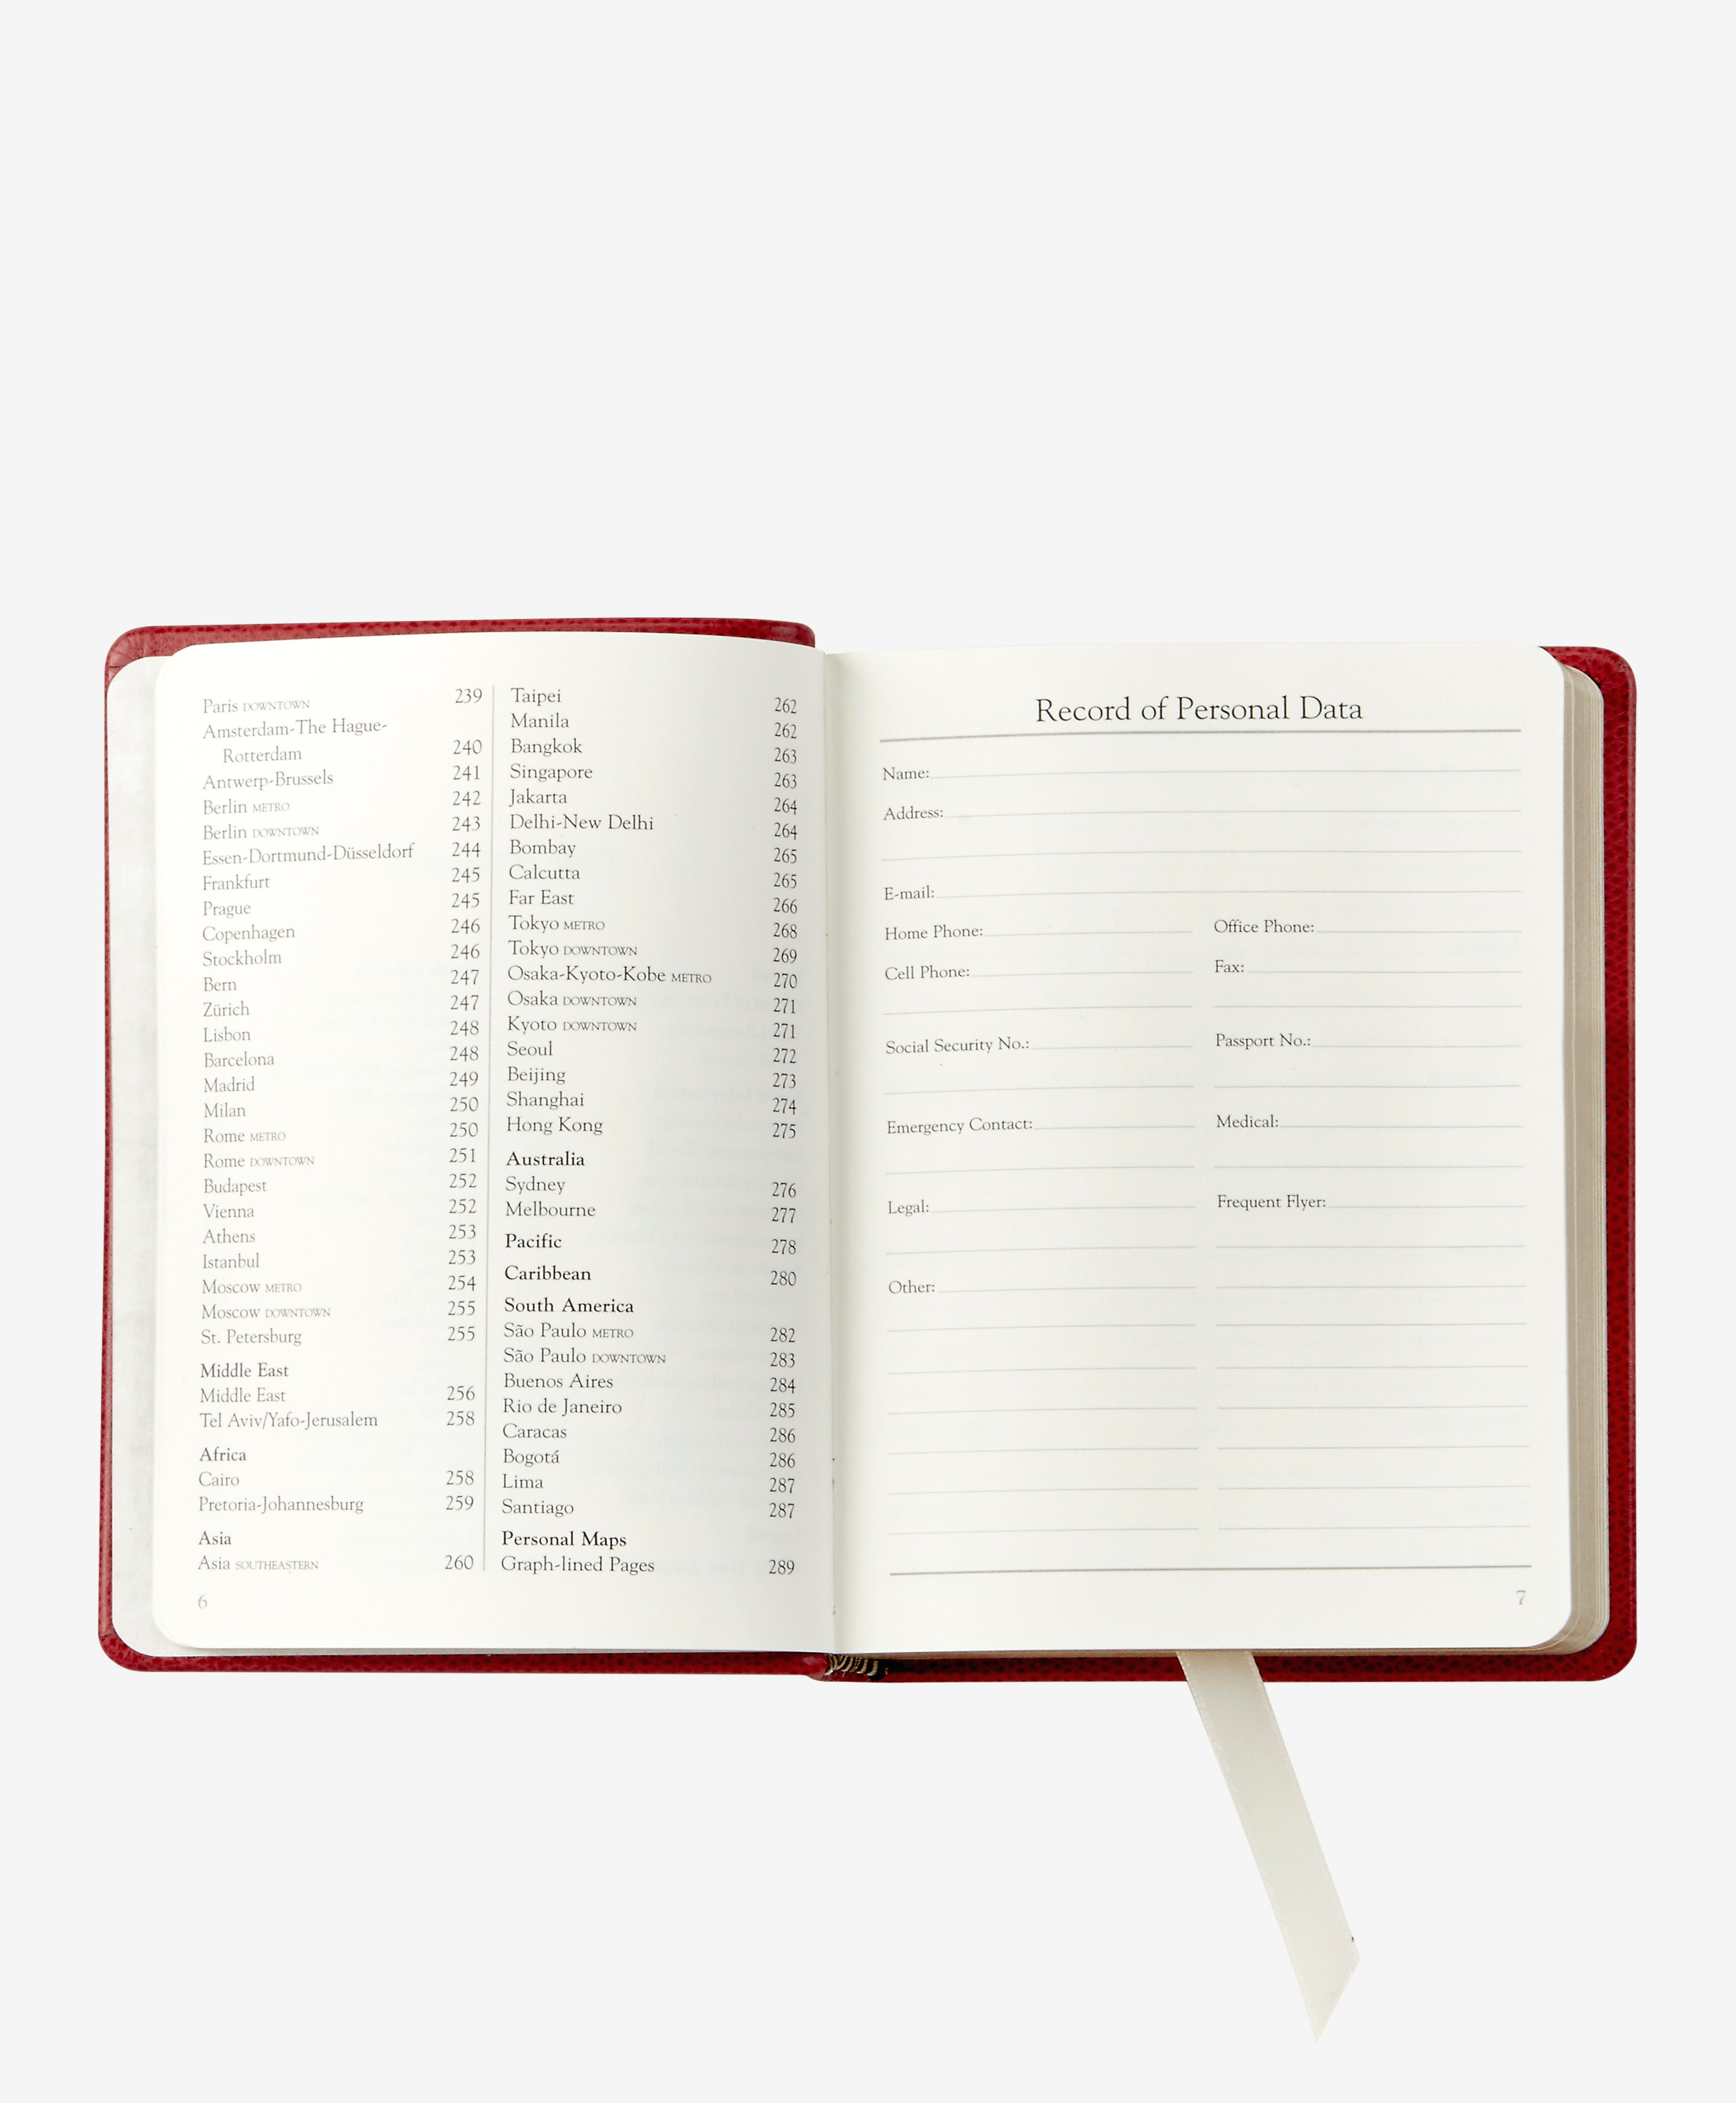 Paris DOWNTOWN 239
Amsterdam-The Hague-
Rotterdam 240
Antwerp-Brussels 241
Berlin METRO 242
Berlin DOWNTOWN 243
Essen-Dortmund-Düsseldorf 244
Frankfurt 245
Prague 245
Copenhagen 246
Stockholm 246
Bern 247
Zürich 247
Lisbon 248
Barcelona 248
Madrid 249
Milan 250
Rome METRO 250
Rome DOWNTOWN 251
Budapest 252
Vienna 252
Athens 253
Istanbul 253
Moscow METRO 254
Moscow DOWNTOWN 255
St. Petersburg 255
Middle East
Middle East 256
Tel Aviv/Yafo-Jerusalem 258
Africa
Cairo 258
Pretoria-Johannesburg 259
Asia
Asia SOUTHEASTERN 260
6
Taipei 262
Manila 262
Bangkok 263
Singapore 263
Jakarta 264
Delhi-New Delhi 264
Bombay 265
Calcutta 265
Far East 266
Tokyo METRO 268
Tokyo DOWNTOWN 269
Osaka-Kyoto-Kobe METRO 270
Osaka DOWNTOWN 271
Kyoto DOWNTOWN 271
Seoul 272
Beijing 273
Shanghai 274
Hong Kong 275
Australia
Sydney 276
Melbourne 277
Pacific 278
Caribbean 280
South America
São Paulo METRO 282
São Paulo DOWNTOWN 283
Buenos Aires 284
Rio de Janeiro 285
Caracas 286
Bogotá 286
Lima 287
Santiago 287
Personal Maps
Graph-lined Pages 289
Record of Personal Data
Name:
Address:
E-mail:
Home Phone: Office Phone:
Cell Phone: Fax:
Social Security No.: Passport No.:
Emergency Contact: Medical:
Legal: Frequent Flyer:
Other:
7